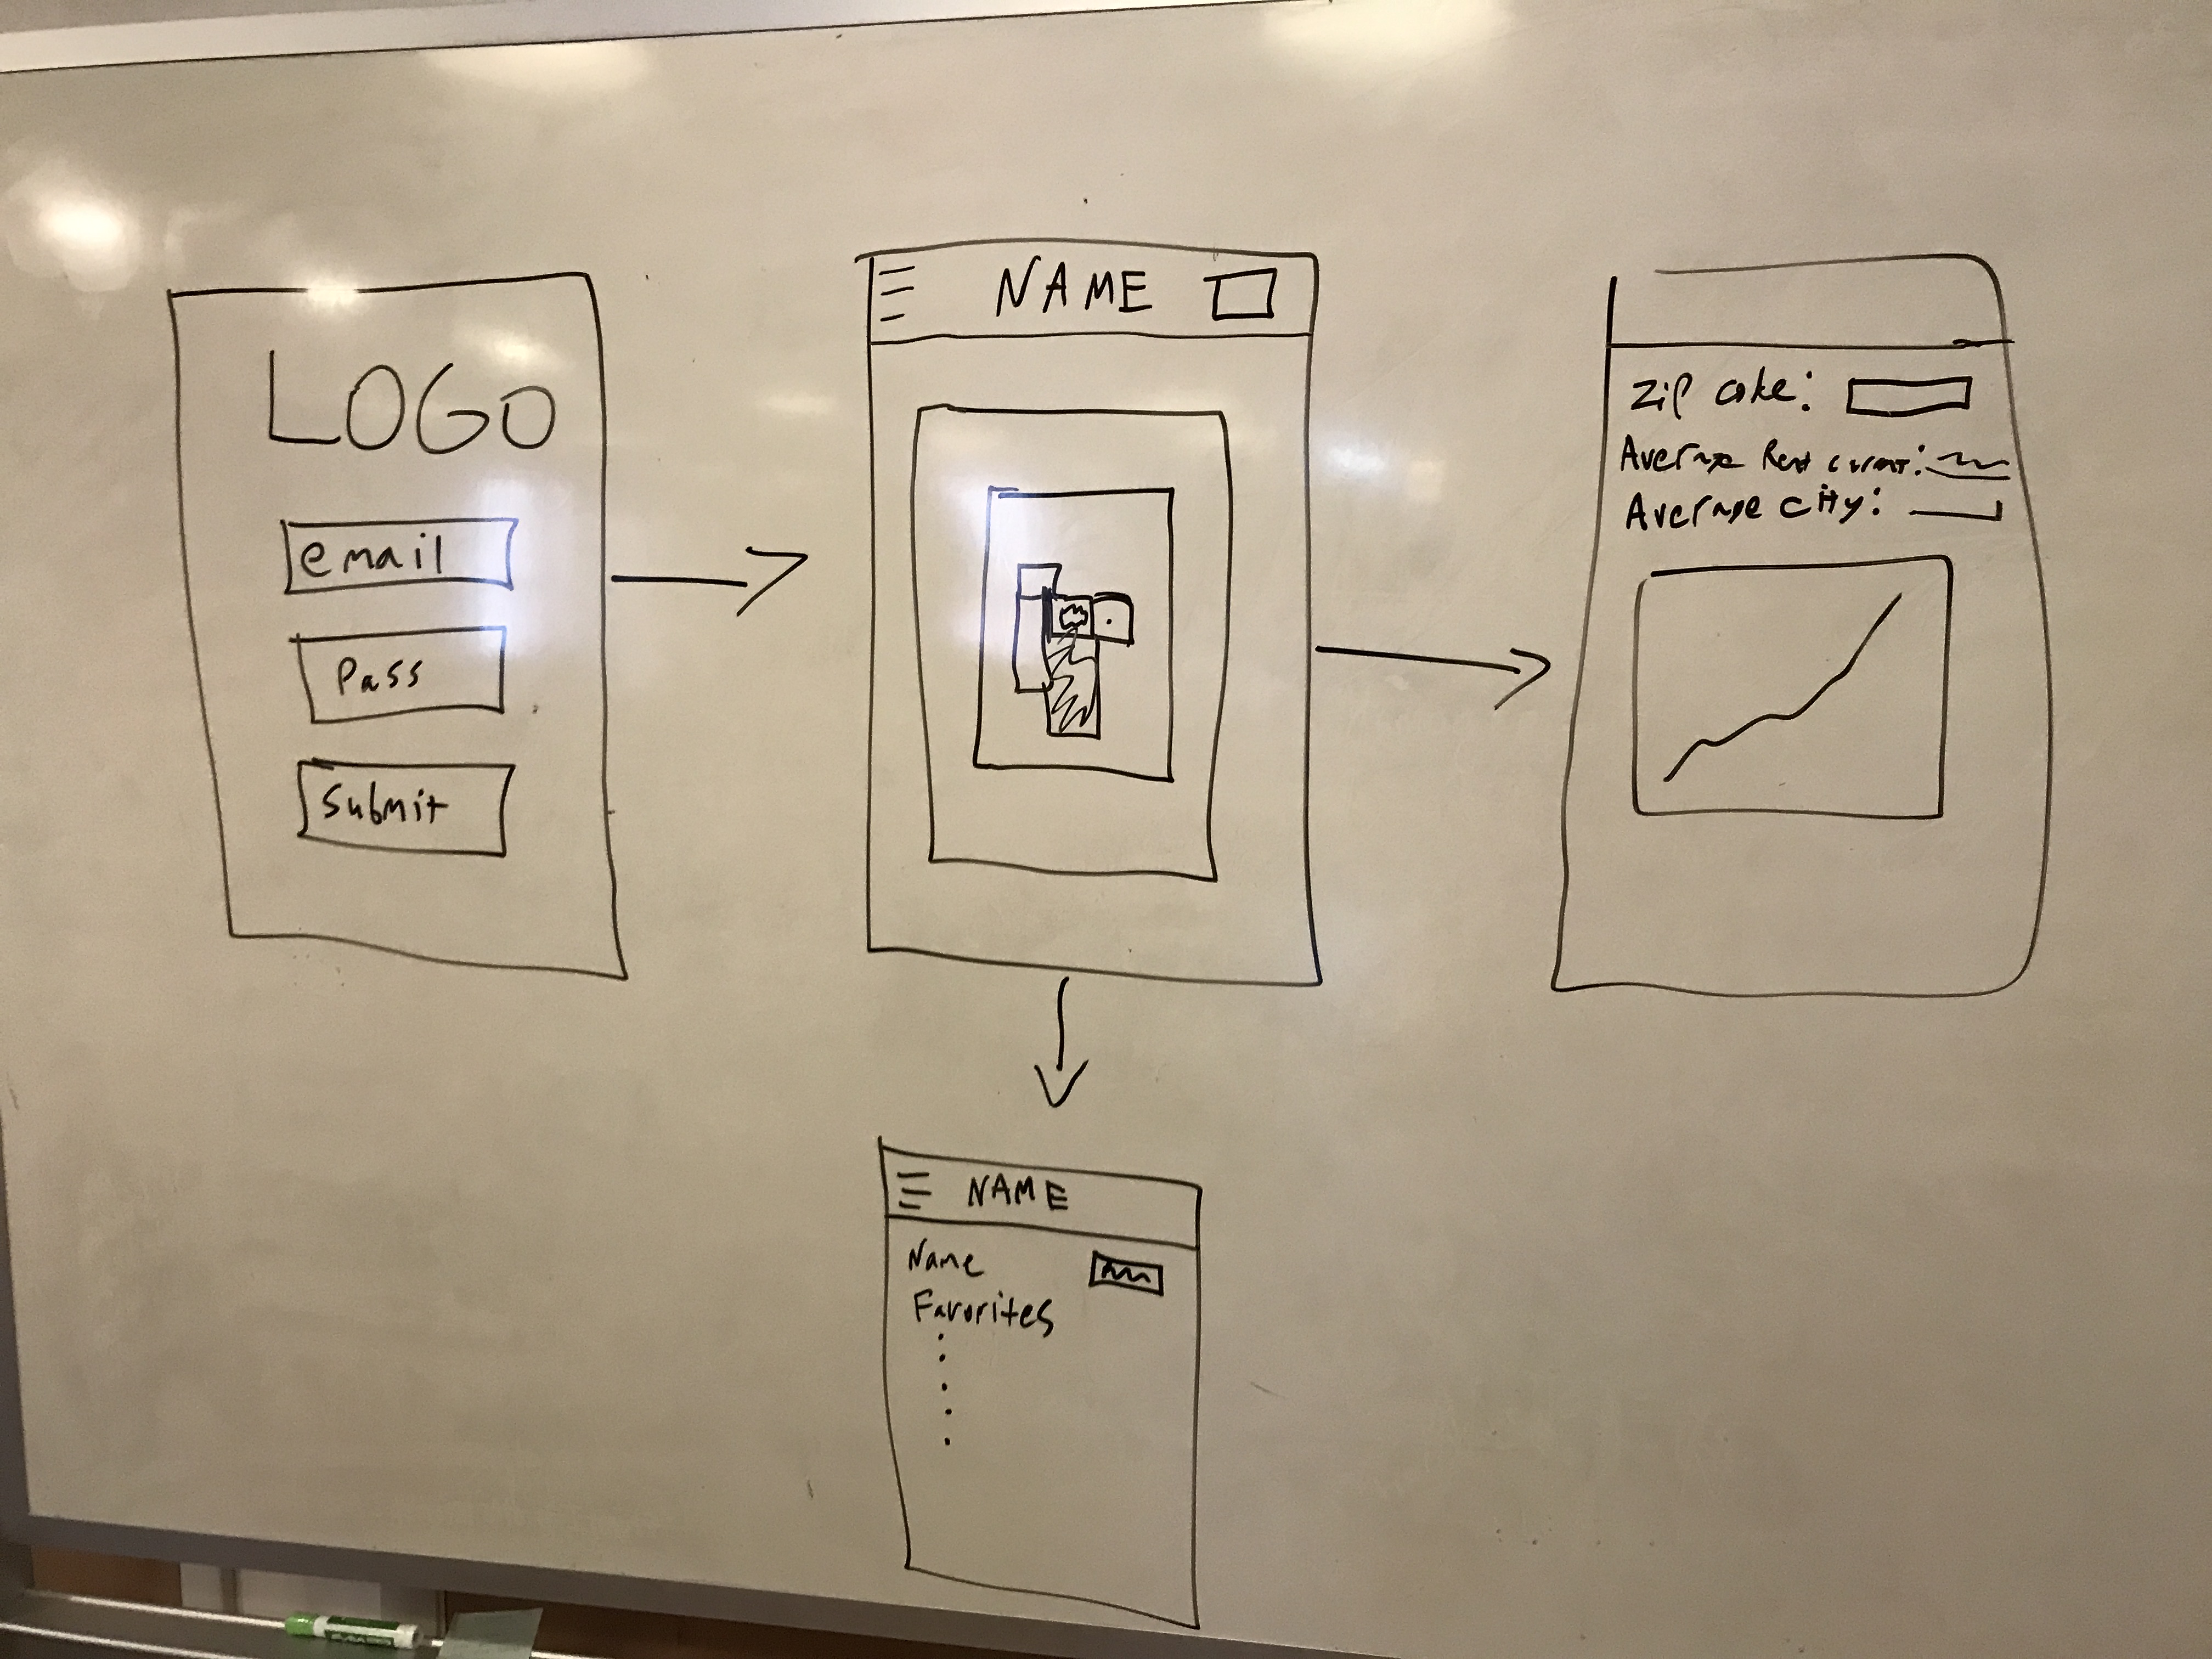 LOGO
email
Pass
Submit
NAME
Zip code:
Average Rent current:
Average city:
NAME
Name
Favorites